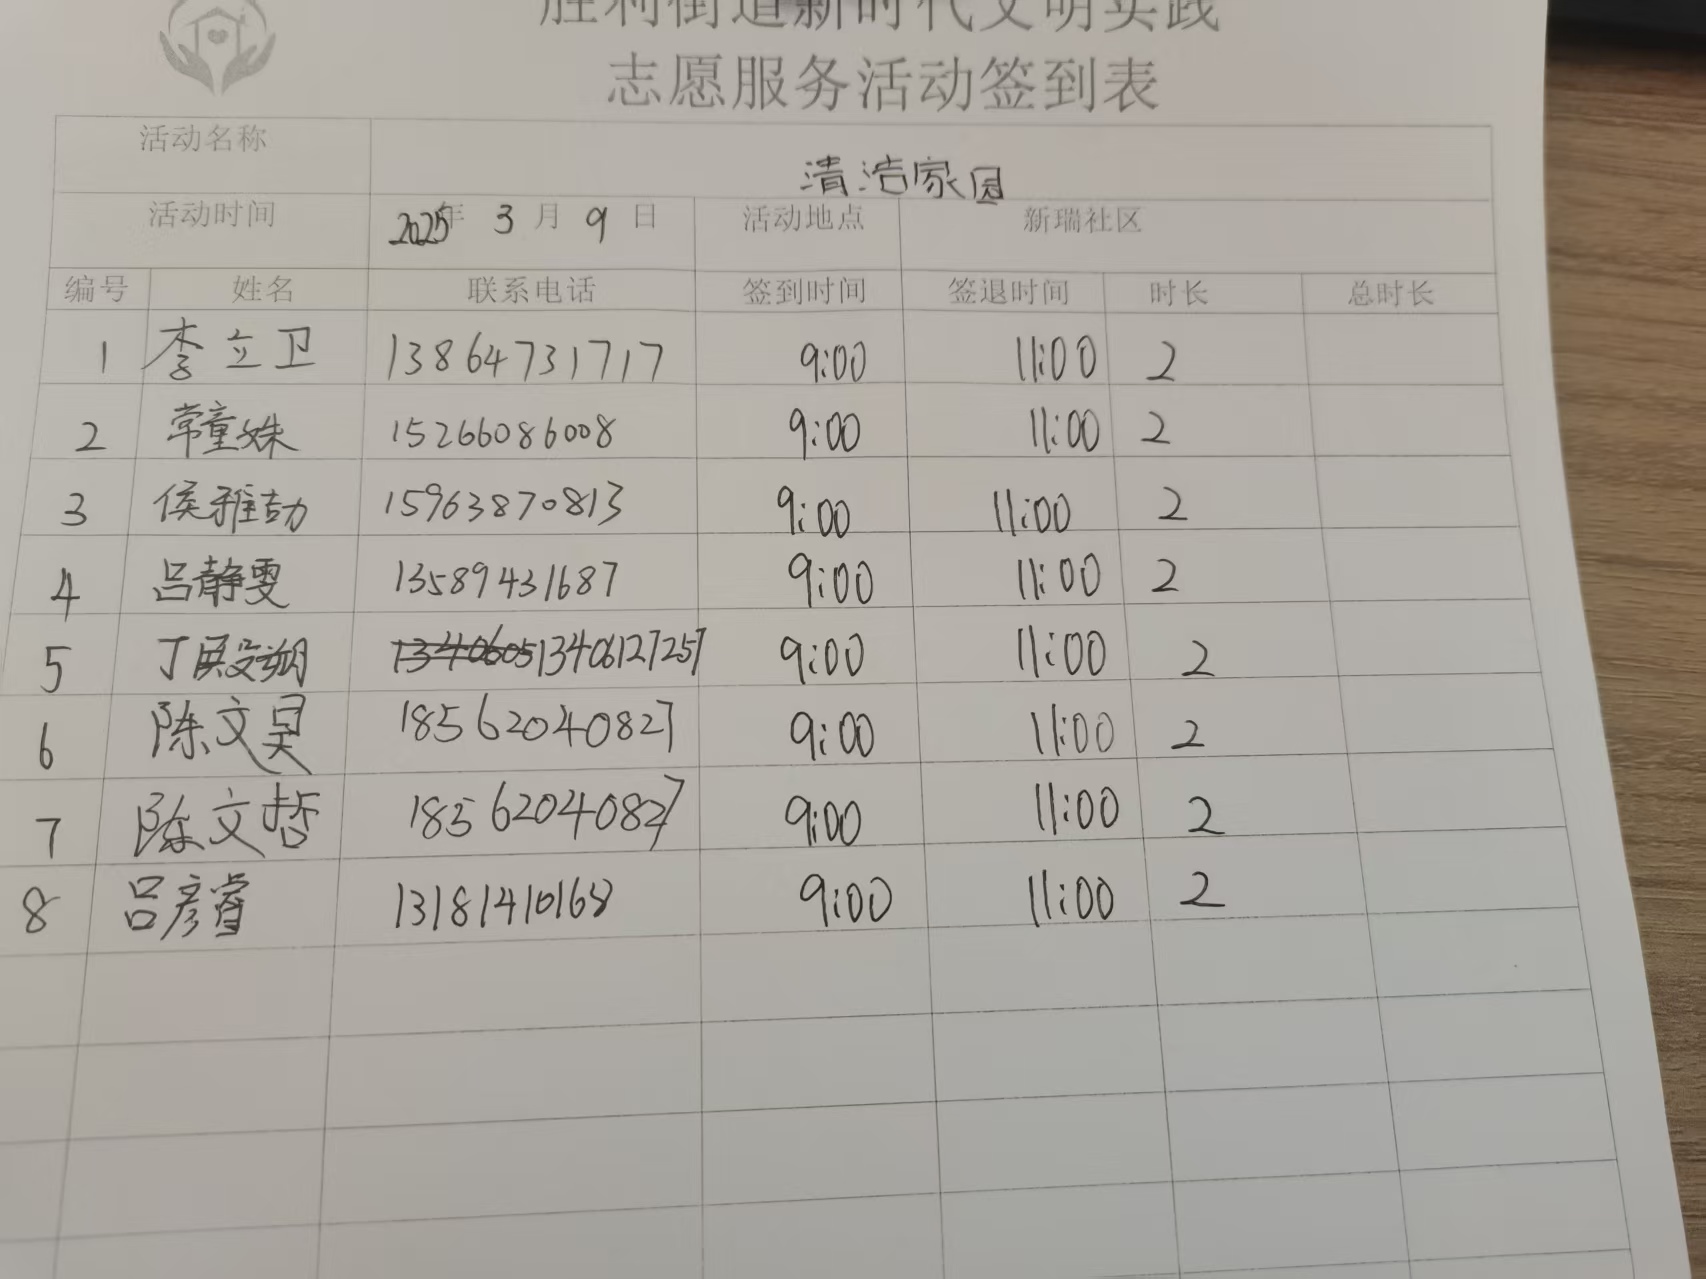 胜利街道新时代文明实践
志愿服务活动签到表
活动名称 清洁家园
活动时间 2025年 3 月 9 日 活动地点 新瑞社区
编号 姓名 联系电话 签到时间 签退时间 时长 总时长
1 李立卫 13864731717 9:00 11:00 2
2 常童姝 15266086008 9:00 11:00 2
3 侯雅喆 15963870813 9:00 11:00 2
4 吕静雯 13589431687 9:00 11:00 2
5 丁 13406127257 9:00 11:00 2
6 陈文昊 18562040827 9:00 11:00 2
7 陈文哲 18562040827 9:00 11:00 2
8 吕彦睿 13181410168 9:00 11:00 2